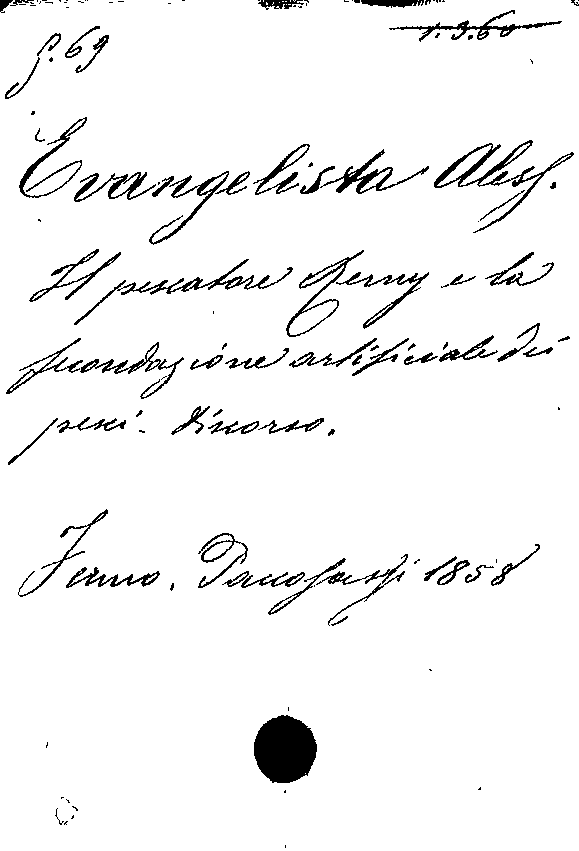 1.3.60
g. 69
Evangelista Aless.
Il pescatore Remy e la
fecondazione artificiale dei
pesci - discorso.
Fermo. Paccasassi 1858